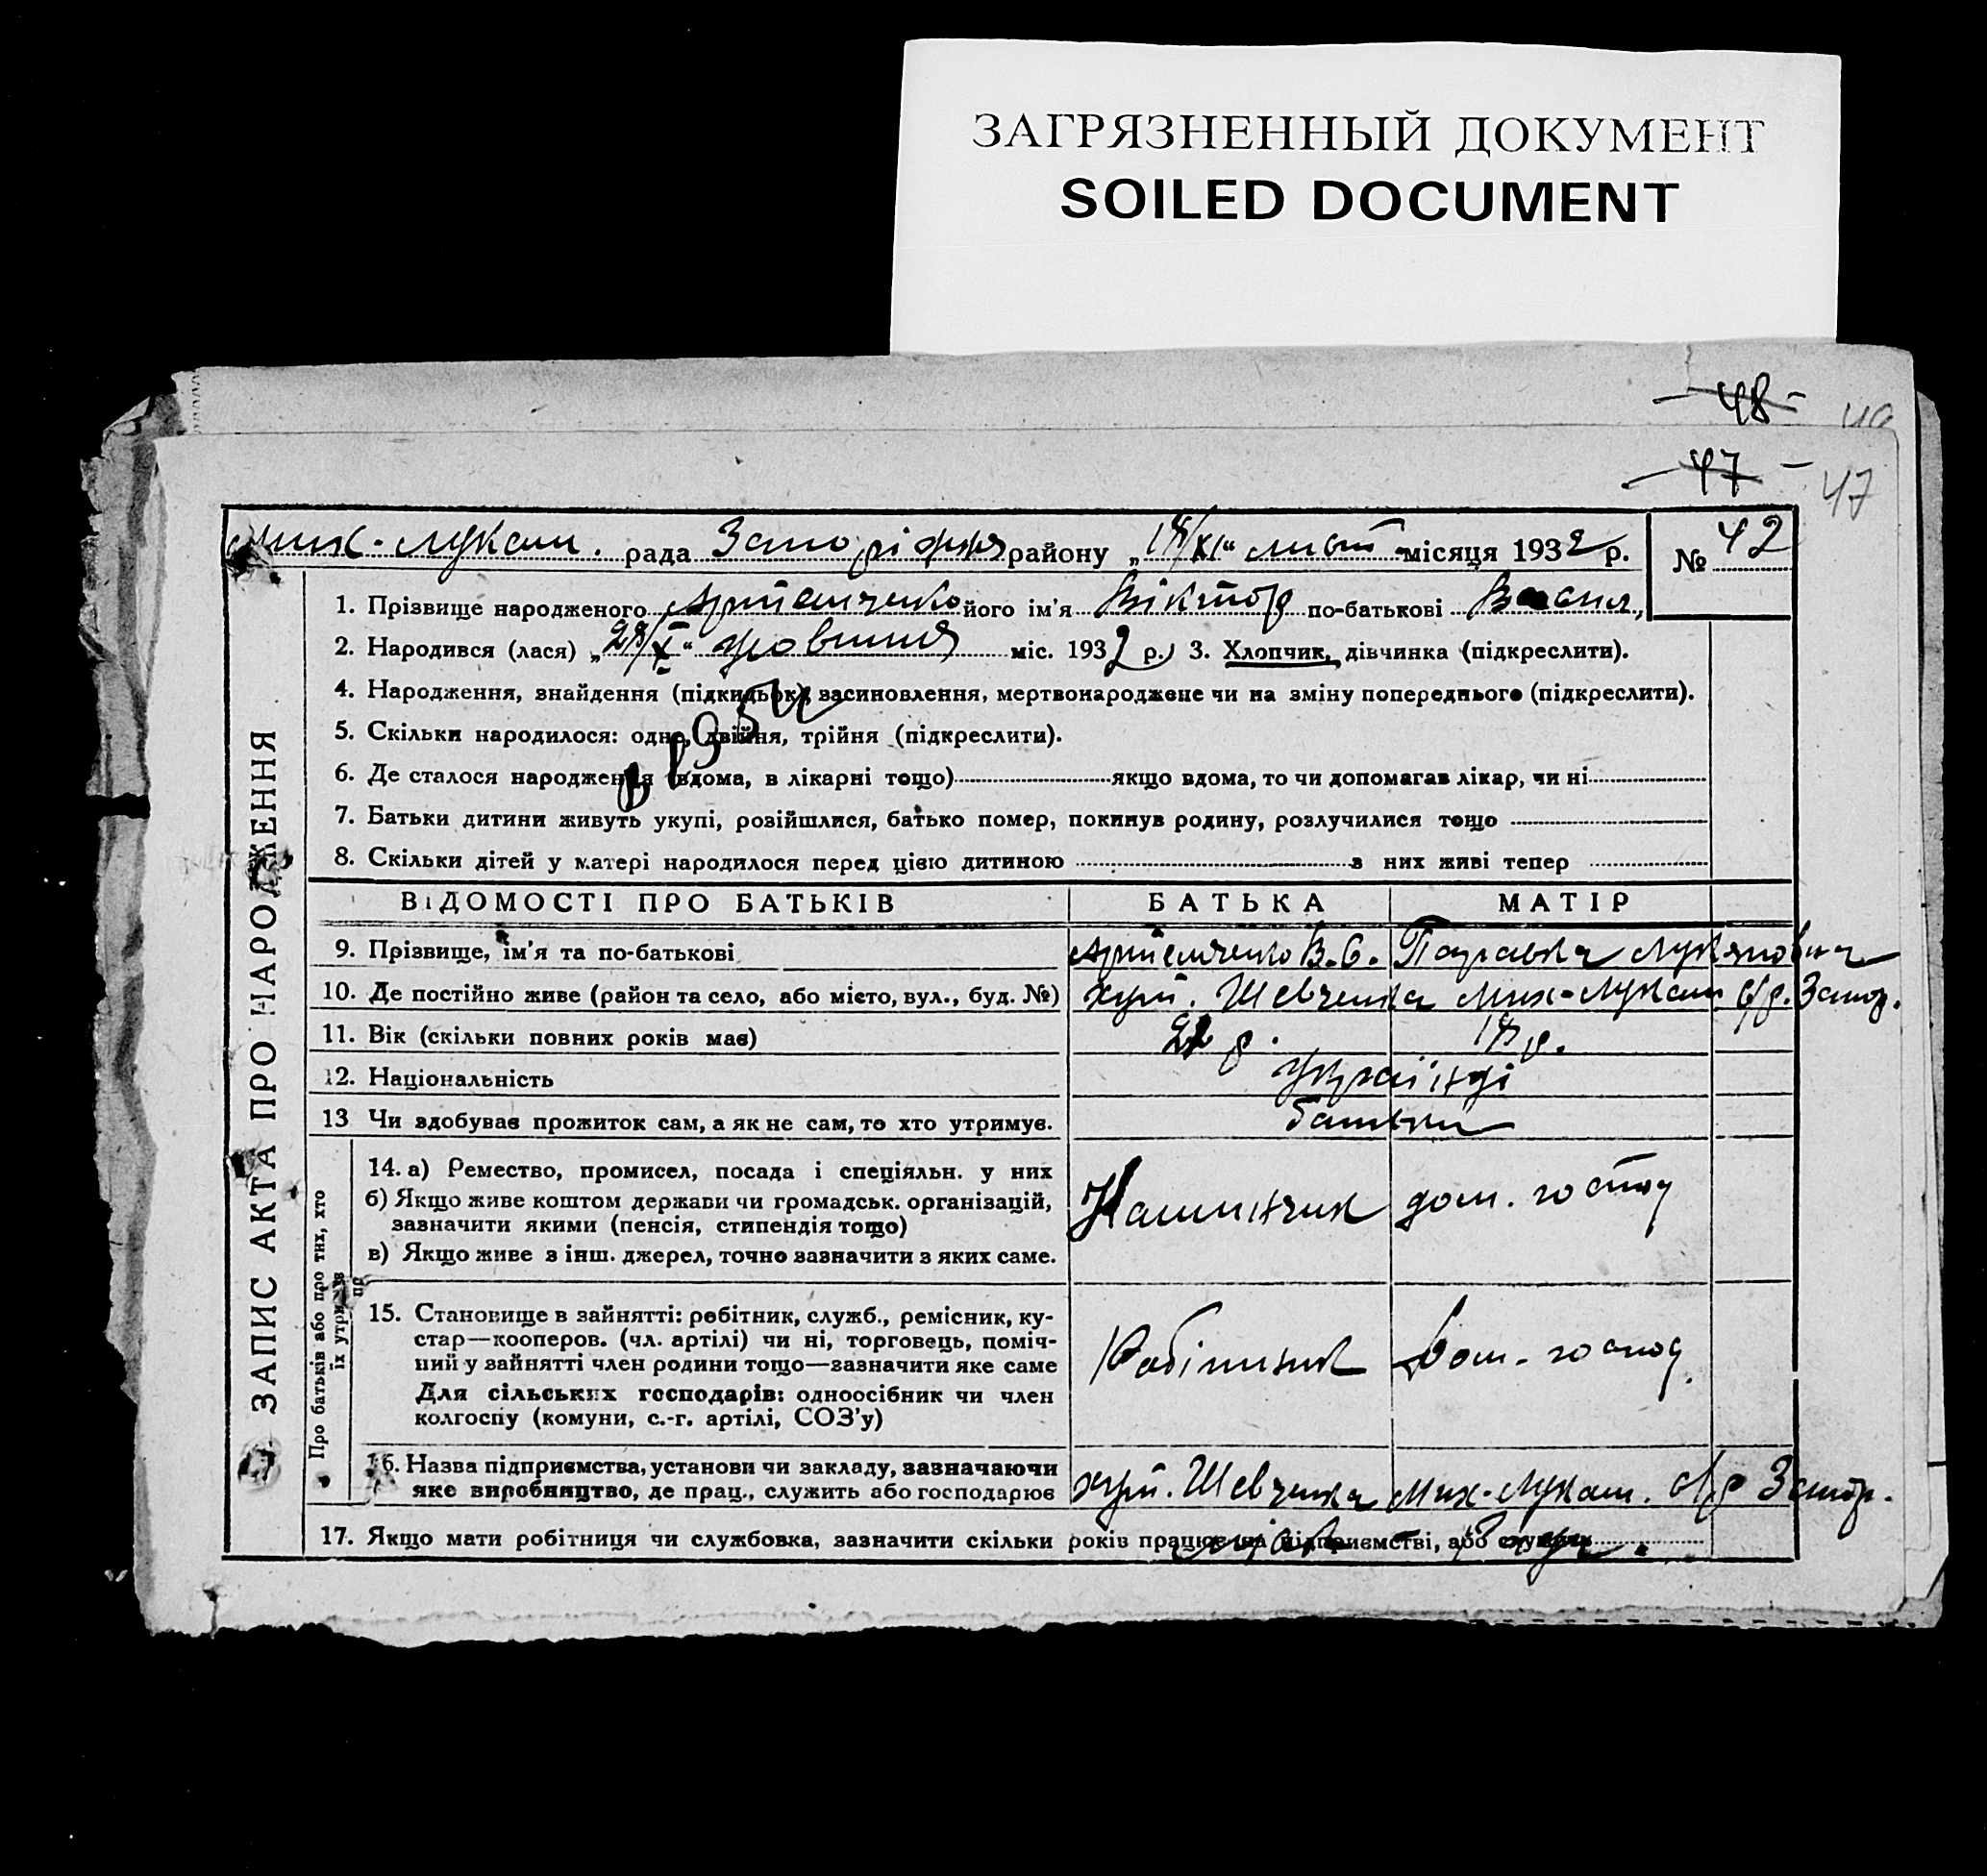 ЗАГРЯЗНЕННЫЙ ДОКУМЕНТ
SOILED DOCUMENT
48
47
47
Мих-Лукаш. рада Запоріжжя району „18/XI“ лист місяця 1932 р. № 42
ЗАПИС АКТА ПРО НАРОДЖЕННЯ
1. Прізвище народженого Артемченко його ім'я Віктор по-батькові Васил.
2. Народився (лася) „28/X“ жовтня міс. 1932 р. 3. Хлопчик, дівчинка (підкреслити).
4. Народження, знайдення (підкидьок), засиновлення, мертвонароджене чи на зміну попереднього (підкреслити).
5. Скільки народилося: одне, двійня, трійня (підкреслити).
6. Де сталося народження (вдома, в лікарні тощо) якщо вдома, то чи допомагав лікар, чи ні
7. Батьки дитини живуть укупі, розійшлися, батько помер, покинув родину, розлучилися тощо
8. Скільки дітей у матері народилося перед цією дитиною з них живі тепер
ВІДОМОСТІ ПРО БАТЬКІВ БАТЬКА МАТІР
9. Прізвище, ім'я та по-батькові Артемченко В. С. Параска Лукяновна
10. Де постійно живе (район та село, або місто, вул., буд. №) хут. Шевченка Мих-Лукаш с/р. Запор.
11. Вік (скільки повних років має) р. 18 р.
12. Національність Українці
13 Чи здобуває прожиток сам, а як не сам, то хто утримує. батьки
Про батьків або про тих, хто їх утримує
14. а) Ремество, промисел, посада і спеціяльн. у них
б) Якщо живе коштом держави чи громадськ. організацій,
зазначити якими (пенсія, стипендія тощо)
в) Якщо живе з інш. джерел, точно зазначити з яких саме.
дом. господ
15. Становище в зайнятті: робітник, служб., ремісник, ку-
стар—кооперов. (чл. артілі) чи ні, торговець, поміч-
ний у зайнятті член родини тощо—зазначити яке саме
Для сільських господарів: одноосібник чи член
колгоспу (комуни, с.-г. артілі, СОЗ'у)
Робітник дом. господ.
16. Назва підприємства, установи чи закладу, зазначаючи
яке виробництво, де прац., служить або господарює
хут. Шевченка Мих-Лукаш. с/р Запор.
17. Якщо мати робітниця чи службовка, зазначити скільки років працює на підприємстві, або служить